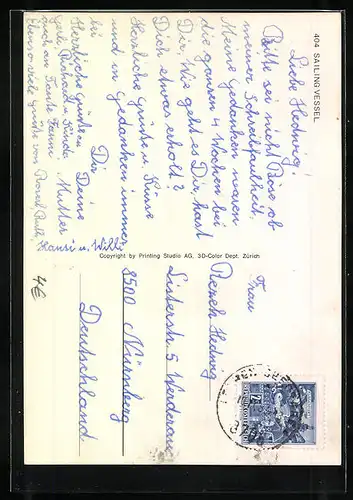 404 SAILING VESSEL
Liebe Hedwig!
Bitte sei nicht Böse ob
meiner Schreibfaulheit.
Meine Gedanken waren
die ganzen 4 Wochen bei
Dir. Wie geht es Dir, hast
Dich etwas erholt?
Herzliche Grüße u. Küsse
und in Gedanken immer
bei Dir
Deine
Mutter
Herzliche Grüße
Richard u. Kinder
auch an Tante Fanni
Ebenso viele Grüße von
Hansi u. Willi
Copyright by Printing Studio AG, 3D-Color Dept. Zürich
Frau
Hedwig
Linterstr. 5
8500 Nürnberg
Deutschland
4€